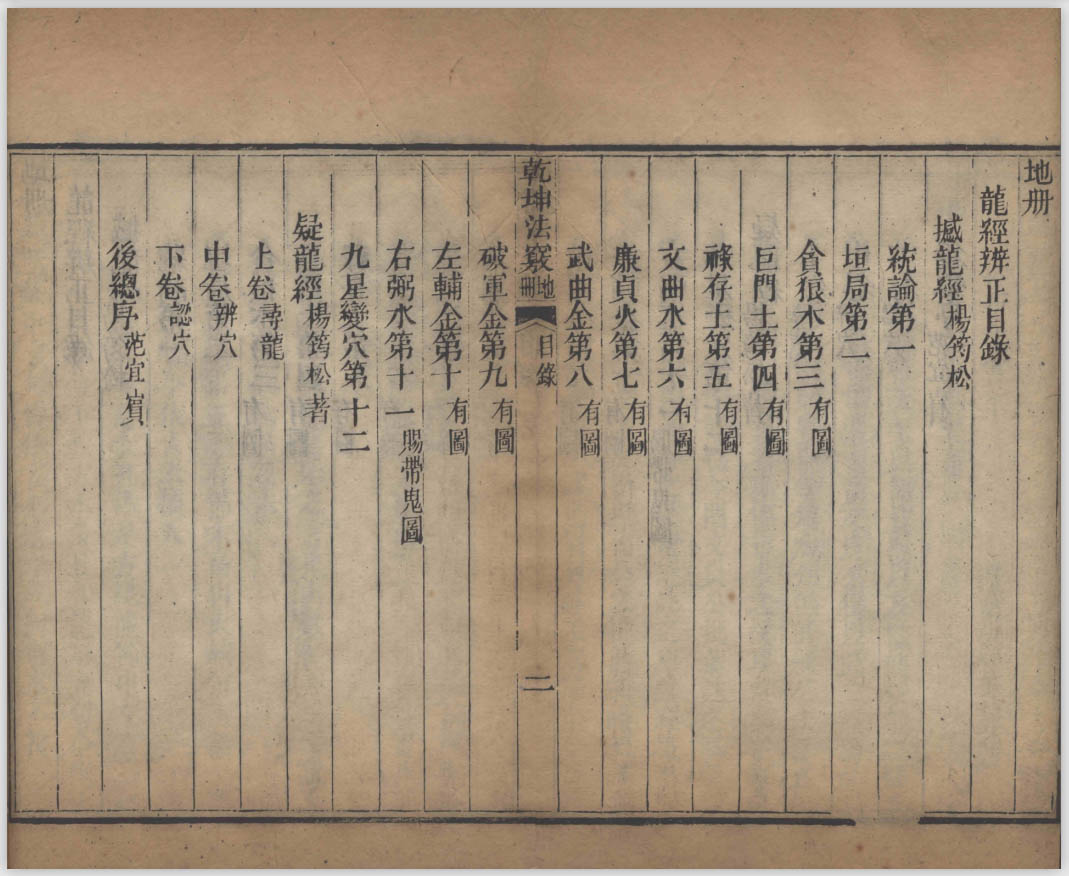 地册
龍經辨正目錄
撼龍經 楊筠松
統論第一
垣局第二
貪狼木第三 有圖
巨門土第四 有圖
祿存土第五 有圖
文曲水第六 有圖
廉貞火第七 有圖
武曲金第八 有圖
乾坤法竅 地册 目錄 二
破軍金第九 有圖
左輔金第十 有圖
右弼水第十一 賜帶鬼圖
九星變穴第十二
疑龍經 楊筠松著
上卷 尋龍
中卷 辨穴
下卷 認穴
後總序 范宜賔